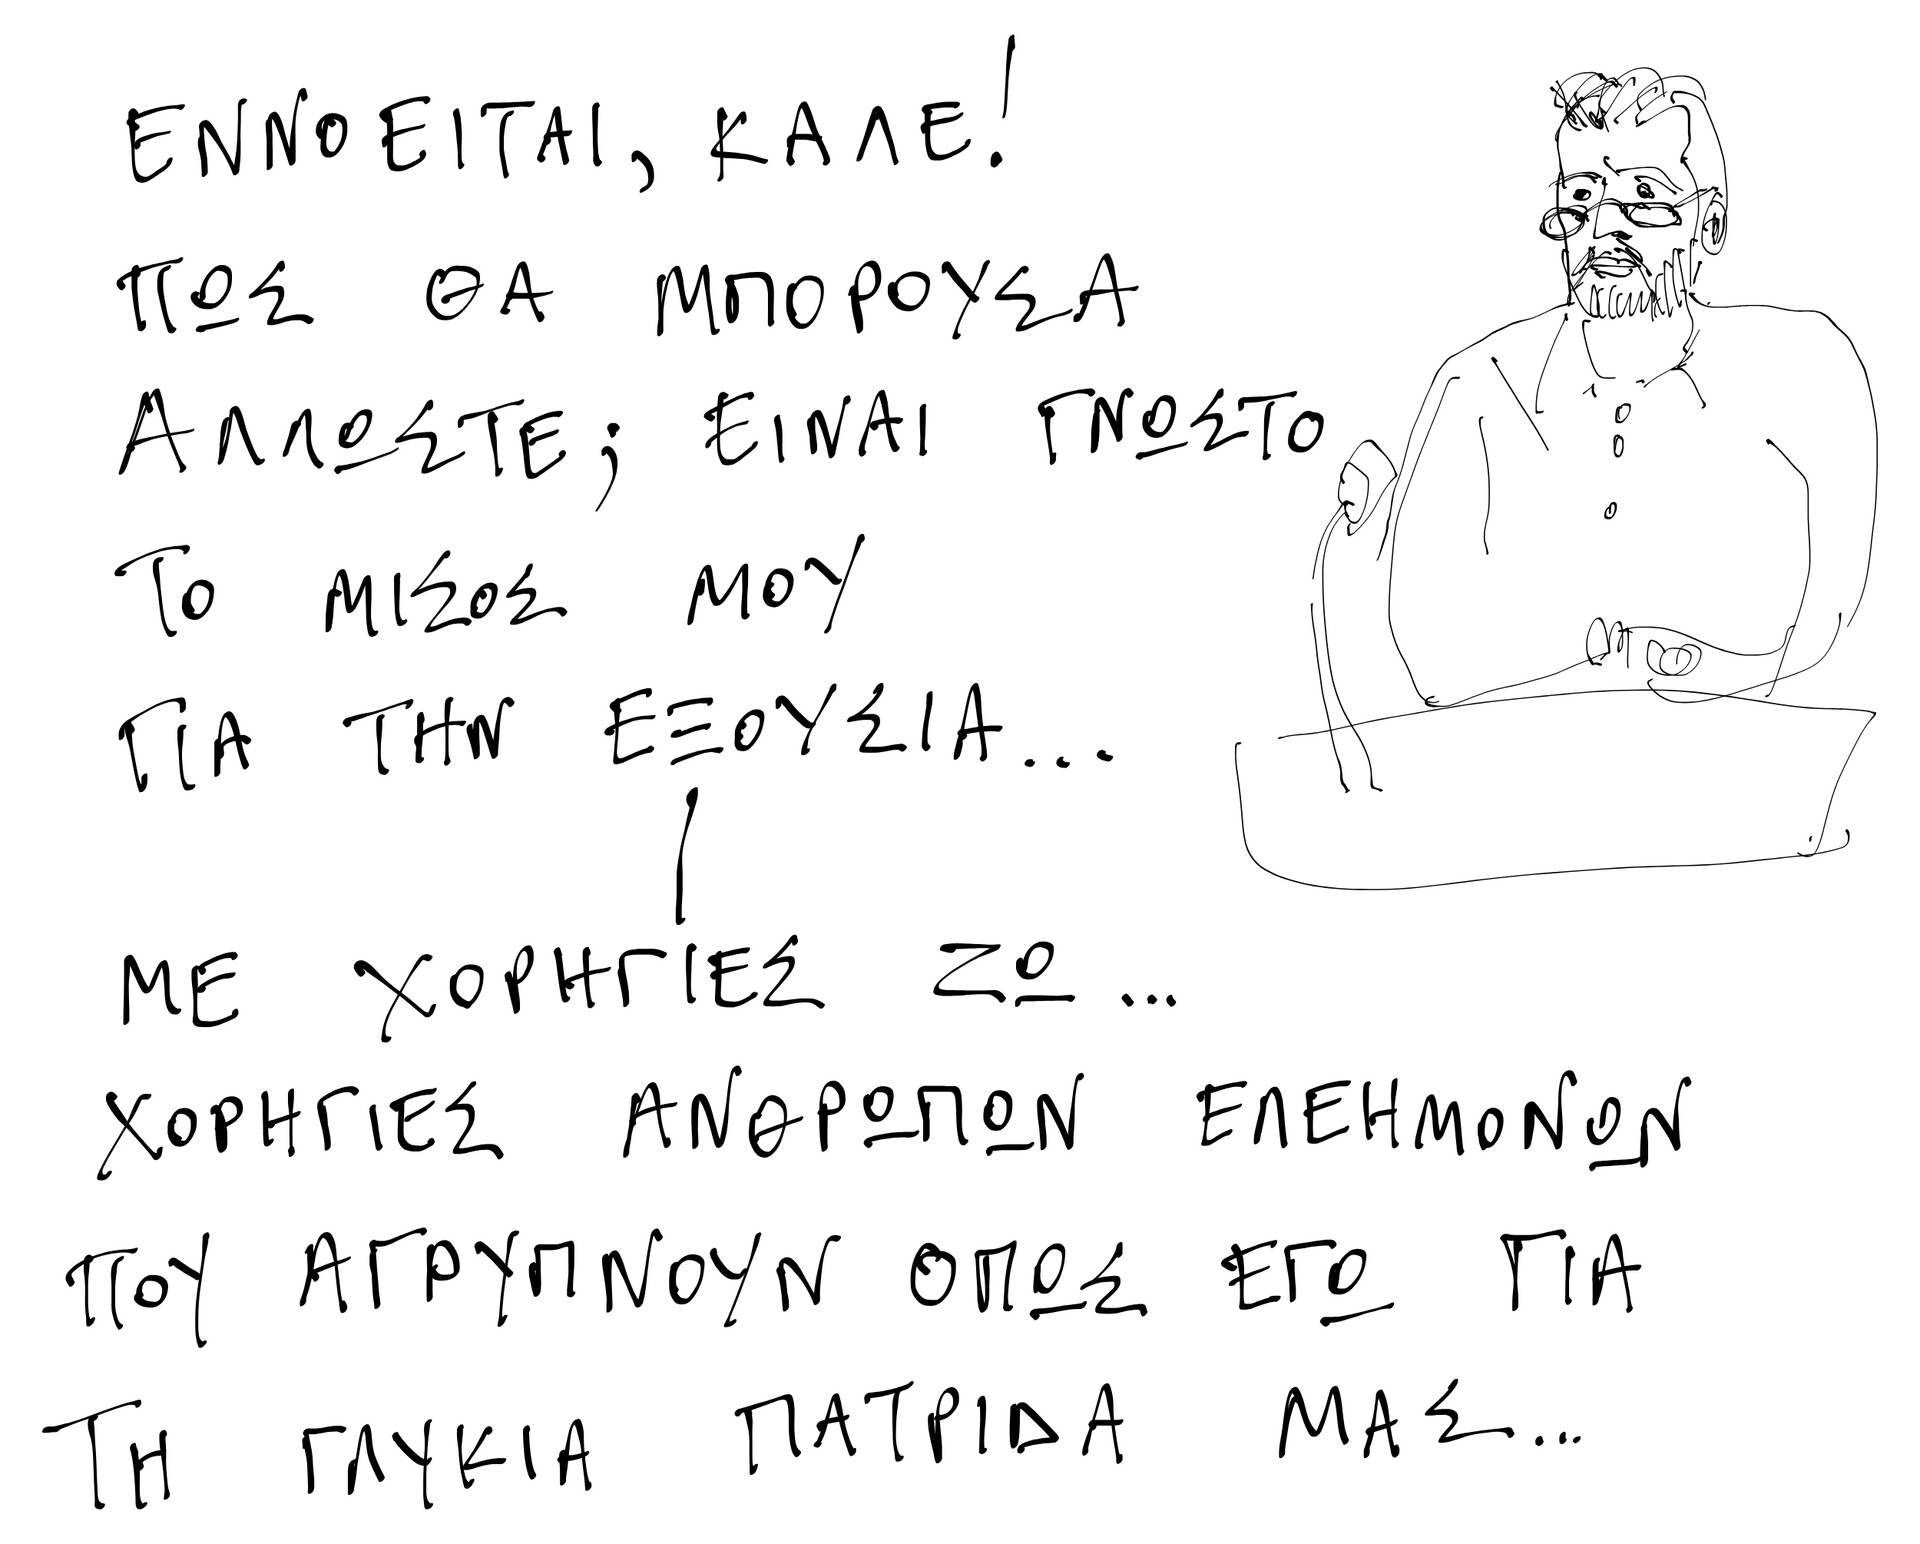 ΕΝΝΟΕΙΤΑΙ, ΚΑΛΕ!
ΠΩΣ ΘΑ ΜΠΟΡΟΥΣΑ
ΑΛΛΩΣΤΕ; ΕΙΝΑΙ ΓΝΩΣΤΟ
ΤΟ ΜΙΣΟΣ ΜΟΥ
ΓΙΑ ΤΗΝ ΕΞΟΥΣΙΑ...
ΜΕ ΧΟΡΗΓΙΕΣ ΖΩ...
ΧΟΡΗΓΙΕΣ ΑΝΘΡΩΠΩΝ ΕΛΕΗΜΟΝΩΝ
ΠΟΥ ΑΓΡΥΠΝΟΥΝ ΟΠΩΣ ΕΓΩ ΓΙΑ
ΤΗ ΓΛΥΚΙΑ ΠΑΤΡΙΔΑ ΜΑΣ...